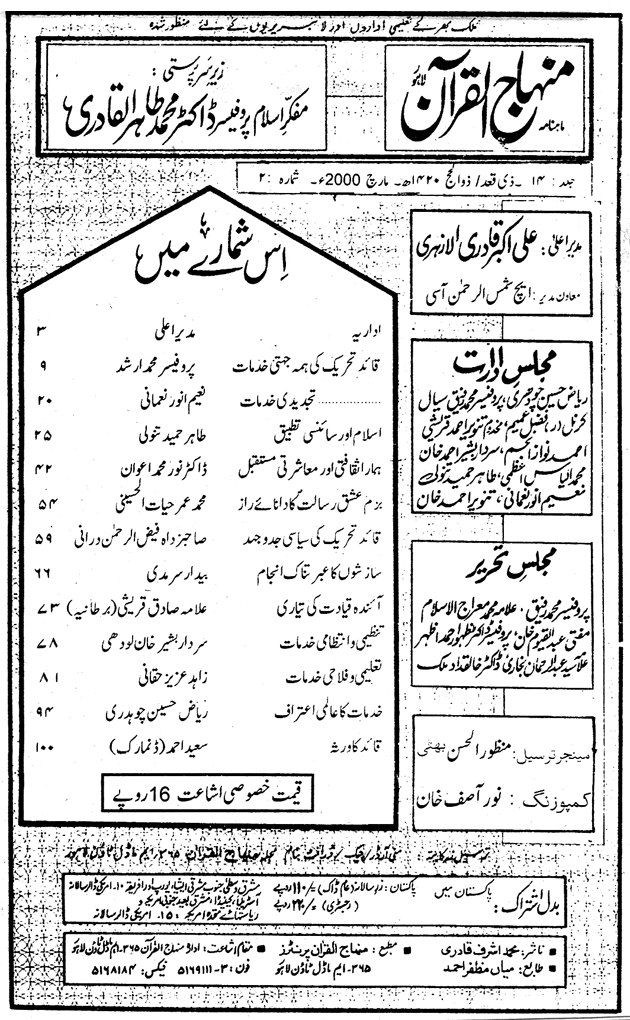 ملک بھر کے تعلیمی اداروں اور لائبریریوں کے لئے منظور شدہ
ماہنامہ منہاج القرآن لاہور
زیر سرپرستی:
مفکر اسلام پروفیسر ڈاکٹر محمد طاہر القادری
جلد: ۱۴ ۔ ذی قعد/ ذوالحج ۱۴۲۰ھ۔ مارچ 2000ء۔ شمارہ: ۲
مدیر اعلیٰ: علی اکبر قادری الازہری
معاون مدیر: ایچ شمس الرحمن آسی
مجلس ادارت
ریاض حسین چودھری، پروفیسر محمد رفیق سیال
کرنل (ر) فضل عمیم، مخدوم تنویر احمد قریشی
احمد نواز انجم، سردار بشیر احمد خان
محمد الیاس اعظمی، طاہر حمید تنولی
نعیم انور نعمانی، تنویر احمد خان
مجلس تحریر
پروفیسر محمد رفیق ۔ علامہ محمد معراج الاسلام
مفتی عبدالقیوم خان، پروفیسر ڈاکٹر ظہور احمد اظہر
علامہ سید عبدالرحمان بخاری ڈاکٹر خالقداد ملک
مینجر ترسیل: منظور الحسن بھٹی
کمپوزنگ: نور آصف خان
اس شمارے میں
اداریہ مدیر اعلی ۳
قائد تحریک کی ہمہ جہتی خدمات پروفیسر محمد ارشد ۹
تجدیدی خدمات نعیم انور نعمانی ۲۰
اسلام اور سائنسی تطبیق طاہر حمید تنولی ۲۵
ہمارا ثقافتی اور معاشرتی مستقبل ڈاکٹر نور محمد اعوان ۴۲
بزم عشق رسالت کا دانائے راز محمد عمر حیات الحسینی ۵۴
قائد تحریک کی سیاسی جدوجہد صاحبزادہ فیض الرحمٰن درانی ۵۹
سازشوں کا عبرتناک انجام بیدار سرمدی ۶۶
آئندہ قیادت کی تیاری علامہ صادق قریشی (برطانیہ) ۷۳
تنظیمی و انتظامی خدمات سردار بشیر خان لودھی ۷۸
تعلیمی و فلاحی خدمات زاہد عزیز حقانی ۸۱
خدمات کا عالمی اعتراف ریاض حسین چوہدری ۹۴
قائد کا ورثہ سعید احمد (ڈنمارک) ۱۰۰
قیمت خصوصی اشاعت 16 روپے
ترسیل زر کا پتہ: منی آرڈر / چیک / ڈرافٹ بنام مجلہ منہاج القرآن ۳۶۵۔ ایم ماڈل ٹاؤن لاہور
بدل اشتراک: پاکستان میں
پاکستان: زر سالانہ (عام ڈاک) =/۱۱۰ روپے
(رجسٹری) =/۲۲۰ روپے
مشرق وسطیٰ جنوب مشرقی ایشیا، یورپ اور افریقہ ۔۱۰ امریکی ڈالر سالانہ
آسٹریلیا، کینیڈا، مشرق بعید جنوبی امریکہ و
ریاستہائے متحدہ امریکہ: ۱۵۔ امریکی ڈالر سالانہ
ناشر: محمد اشرف قادری ■ مطبع: منہاج القرآن پرنٹرز ■ مقام اشاعت: ادارہ منہاج القرآن ۳۶۵۔ ایم ماڈل ٹاؤن لاہور
طابع: میاں مظفر احمد ۳۶۵۔ ایم ماڈل ٹاؤن لاہور فون: ۳-۵۱۶۹۱۱۱ فیکس: ۵۱۶۸۱۸۴